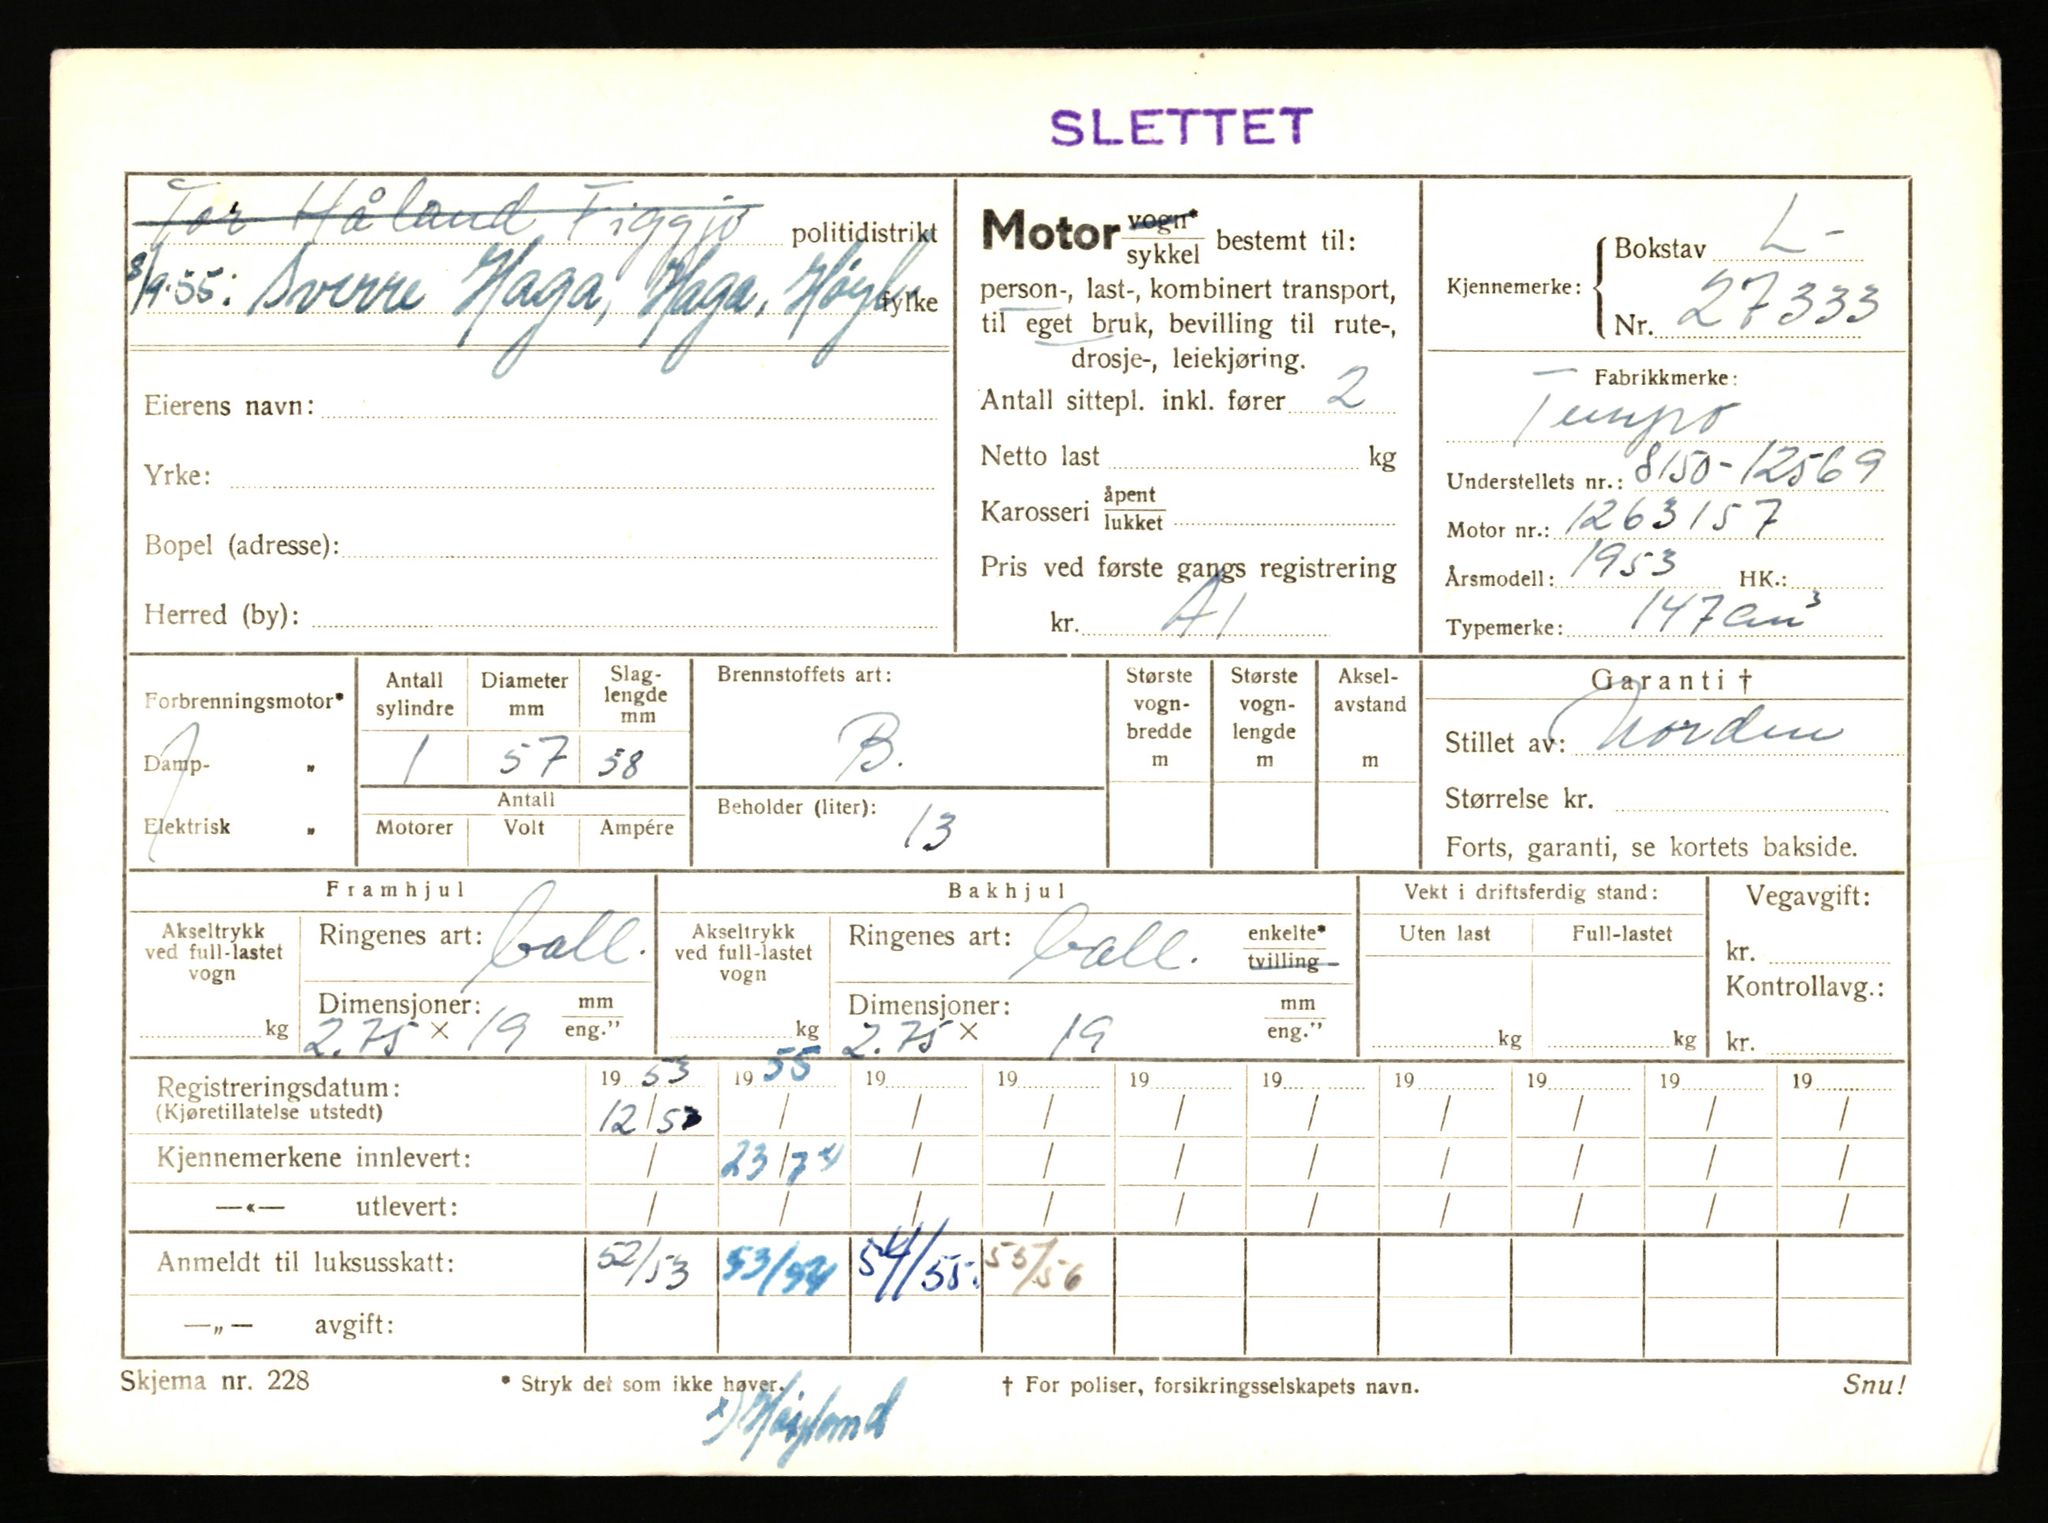 SLETTET
Tor Håland Figgjo politidistrikt
8/9-55: Sverre Haga, Haga, Høyl. fylke
Eierens navn:
Yrke:
Bopel (adresse):
Herred (by):
Motor vogn* / sykkel bestemt til:
person-, last-, kombinert transport,
til eget bruk, bevilling til rute-,
drosje-, leiekjøring.
Antall sittepl. inkl. fører 2
Netto last kg
Karosseri åpent / lukket
Pris ved første gangs registrering
kr. A1
Kjennemerke: Bokstav L-
Nr. 27333
Fabrikkmerke:
Tempo
Understellets nr.: 8150-12569
Motor nr.: 1263157
Årsmodell: 1953 HK.:
Typemerke: 147 cm³
Forbrenningsmotor*
Damp- „
Elektrisk „
Antall sylindre Diameter mm Slag-lengde mm
1 57 58
Antall
Motorer Volt Ampére
Brennstoffets art:
B.
Beholder (liter): 13
Største vogn-bredde m
Største vogn-lengde m
Aksel-avstand m
Garanti †
Stillet av: Norden
Størrelse kr.
Forts, garanti, se kortets bakside.
Framhjul
Akseltrykk ved full-lastet vogn
kg
Ringenes art: ball.
Dimensjoner: mm / eng."
2.75 × 19
Bakhjul
Akseltrykk ved full-lastet vogn
kg
Ringenes art: ball. enkelte* / tvilling
Dimensjoner: mm / eng."
2.75 × 19
Vekt i driftsferdig stand:
Uten last Full-lastet
kg kg
Vegavgift:
kr.
Kontrollavg.:
kr.
Registreringsdatum: 19 53 19 55 19 19 19 19 19 19 19 19
(Kjøretillatelse utstedt) 12/5 / / / / / / / / /
Kjennemerkene innlevert: / 23/7 / / / / / / / /
—«— utlevert: / / / / / / / / / /
Anmeldt til luksusskatt: 52/53 53/54 54/55. 55/56
—„— avgift:
Skjema nr. 228 * Stryk det som ikke høver. † For poliser, forsikringsselskapets navn. Snu!
x) Høyland